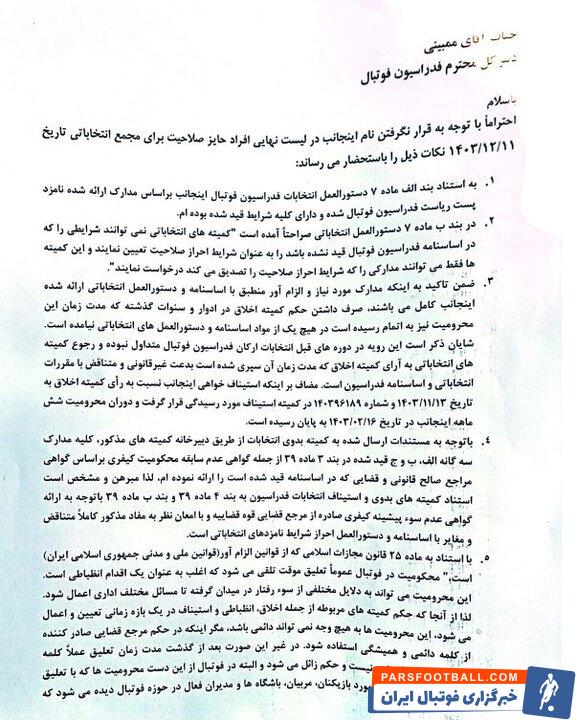 جناب آقای ممبینی
دبیر کل محترم فدراسیون فوتبال
باسلام
احتراماً با توجه به قرار نگرفتن نام اینجانب در لیست نهایی افراد حایز صلاحیت برای مجمع انتخاباتی تاریخ
۱۴۰۳/۱۲/۱۱ نکات ذیل را باستحضار می رساند:
۱. به استناد بند الف ماده ۷ دستورالعمل انتخابات فدراسیون فوتبال اینجانب براساس مدارک ارائه شده نامزد
پست ریاست فدراسیون فوتبال شده و دارای کلیه شرایط قید شده بوده ام.
۲. در بند ب ماده ۷ دستورالعمل انتخاباتی صراحتاً آمده است "کمیته های انتخاباتی نمی توانند شرایطی را که
در اساسنامه فدراسیون فوتبال قید نشده باشد را به عنوان شرایط احراز صلاحیت تعیین نمایند و این کمیته
ها فقط می توانند مدارکی را که شرایط احراز صلاحیت را تصدیق می کند درخواست نمایند".
۳. ضمن تاکید به اینکه مدارک مورد نیاز و الزام آور منطبق با اساسنامه و دستورالعمل انتخاباتی ارائه شده
اینجانب کامل می باشند، صرف داشتن حکم کمیته اخلاق در ادوار و سنوات گذشته که مدت زمان این
محرومیت نیز به اتمام رسیده است در هیچ یک از مواد اساسنامه و دستورالعمل های انتخاباتی نیامده است.
شایان ذکر است این رویه در دوره های قبل انتخابات ارکان فدراسیون فوتبال متداول نبوده و رجوع کمیته
های انتخاباتی به آرای کمیته اخلاق که مدت زمان آن سپری شده است بدعت غیرقانونی و متناقض با مقررات
انتخاباتی و اساسنامه فدراسیون است. مضاف بر اینکه استیناف خواهی اینجانب نسبت به رأی کمیته اخلاق به
تاریخ ۱۴۰۳/۱۱/۱۳ و شماره ۱۴۰۳۹۶۱۸۹ در کمیته استیناف مورد رسیدگی قرار گرفت و دوران محرومیت شش
ماهه اینجانب در تاریخ ۱۴۰۳/۰۲/۱۶ به پایان رسیده است.
۴. باتوجه به مستندات ارسال شده به کمیته بدوی انتخابات از طریق دبیرخانه کمیته های مذکور، کلیه مدارک
سه گانه الف، ب و ج قید شده در بند ۳ ماده ۳۹ از جمله گواهی عدم سابقه محکومیت کیفری براساس گواهی
مراجع صالح قانونی و قضایی که در اساسنامه قید شده است را ارائه نموده ام، لذا مبرهن و مشخص است
استناد کمیته های بدوی و استیناف انتخابات فدراسیون به بند ۴ ماده ۳۹ و بند ب ماده ۳۹ باتوجه به ارائه
گواهی عدم سوء پیشینه کیفری صادره از مرجع قضایی قوه قضاییه و با امعان نظر به مفاد مذکور کاملاً متناقض
و مغایر با اساسنامه و دستورالعمل احراز شرایط نامزدهای انتخاباتی است.
۵. با استناد به ماده ۲۵ قانون مجازات اسلامی که از قوانین الزام آور(قوانین ملی و مدنی جمهوری اسلامی ایران)
است," محکومیت در فوتبال عموماً تعلیق موقت تلقی می شود که اغلب به عنوان یک اقدام انظباطی است.
این محرومیت می تواند به دلایل مختلفی از سوء رفتار در میدان گرفته تا مسائل مختلف اداری اعمال شود.
لذا از آنجا که حکم کمیته های مربوطه از جمله اخلاق، انظباطی و استیناف در یک بازه زمانی تعیین و اعمال
می شود، این محرومیت ها به هیچ وجه نمی تواند دائمی باشد، مگر اینکه در حکم مرجع قضایی صادر کننده
از کلمه دائمی و همیشگی استفاده شود. در غیر این صورت بعد از گذشت مدت زمان تعلیق عملاً کلمه
نیست و حکم زائل می شود و البته در فوتبال از این دست محرومیت ها که با تعلیق
مورد بازیکنان، مربیان، باشگاه ها و مدیران فعال در حوزه فوتبال دیده می شود که
PARSFOOTBALL.COM
خبرگزاری فوتبال ایران